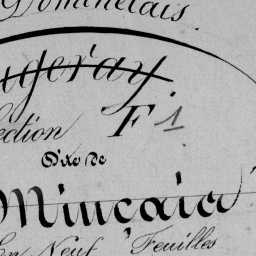 Dominelais.
ugeray
ection F 1
Dite de
Minçaia
En Neuf Feuilles